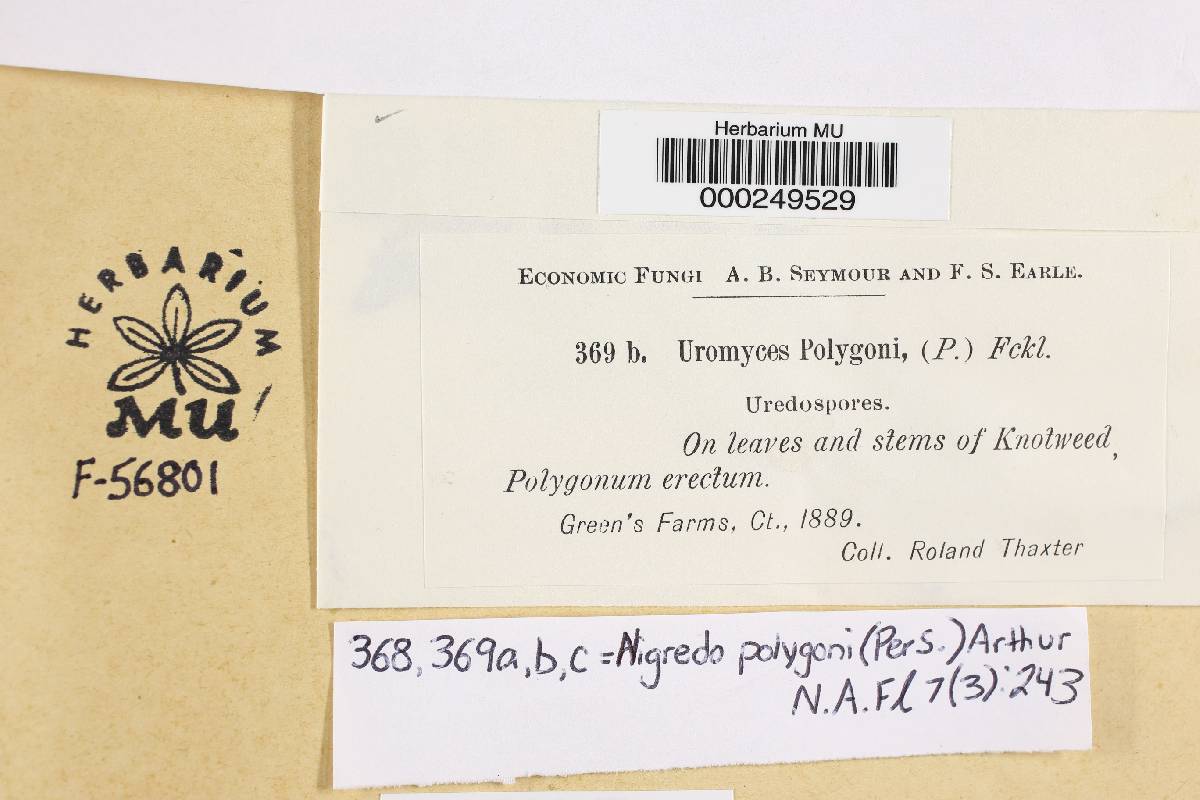 Herbarium MU
000249529
HERBARIUM
MU
F-56801
ECONOMIC FUNGI A. B. SEYMOUR AND F. S. EARLE.
369 b. Uromyces Polygoni, (P.) Fckl.
Uredospores.
On leaves and stems of Knotweed,
Polygonum erectum.
Green's Farms, Ct., 1889.
Coll. Roland Thaxter
368, 369a, b, c = Nigredo polygoni (Pers.) Arthur
N.A.Fl 7(3):243